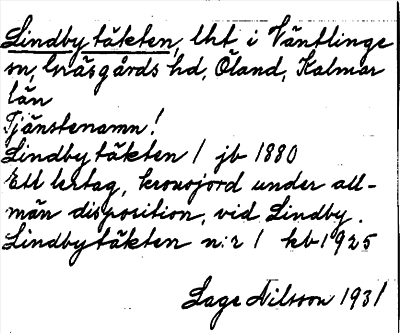 Lindby täkten, lht i Ventlinge
sn, Gräsgårds hd, Öland, Kalmar
län
Tjänstenamn!
Lindby täkten 1 jb 1880
Ett lertag, kronojord under all-
män disposition, vid Lindby.
Lindbytäkten n:r 1 kb 1925
Sage Nilsson 1931